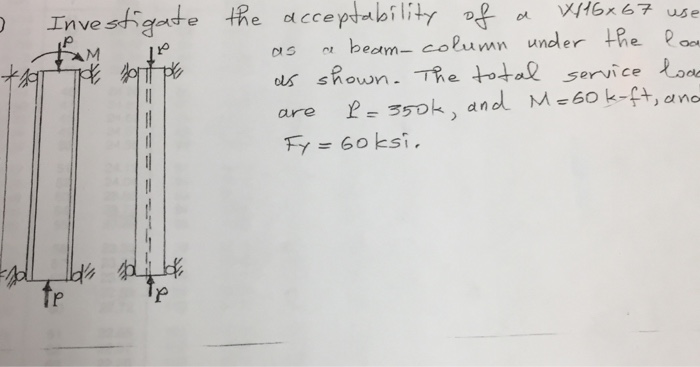 Investigate the acceptability of a W16x67 use
as a beam-column under the loa
as shown. The total service loa
are P = 350k, and M = 60 k-ft, and
Fy = 60 ksi.
P M P
P P